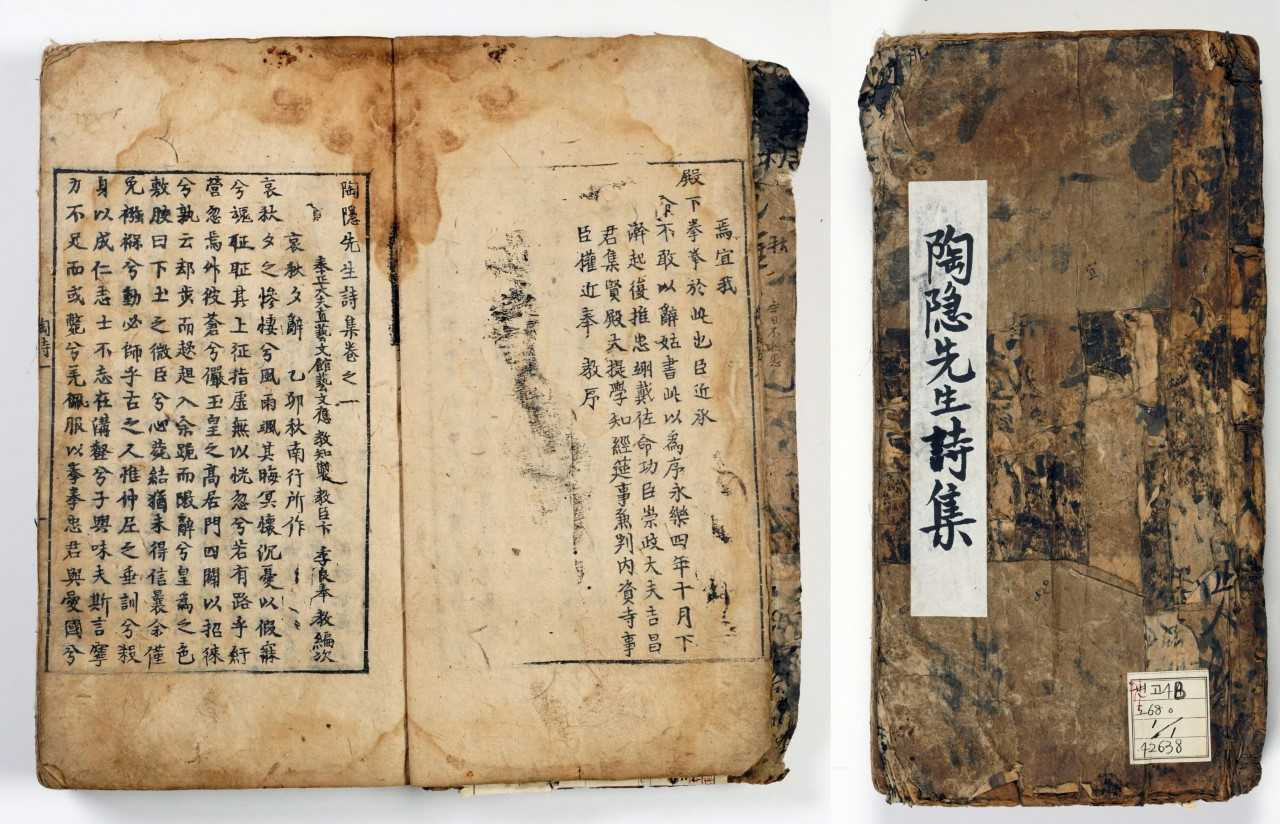 焉宜我
殿下拳拳於此也臣近承
命不敢以辭姑書此以爲序永樂四年十月下
澣起復推忠翊戴佐命功臣崇政大夫吉昌
君集賢殿大提學知 經筵事兼判內資寺事
臣權近奉 敎序
陶隱先生詩集卷之一
奉正大夫直藝文館藝文應 敎知製 敎臣卞 季良奉 敎編次
哀秋夕辭 乙卯秋南行所作
哀秋夕之慘悽兮風雨颯其晦冥懷沉憂以假寐
兮魂征征其上征指虛無以恍忽兮若有路乎紆
營忽焉外彼蒼兮儼玉皇之高居門四闢以招徠
兮孰云却步而趑趄入余跪而陳辭兮皇爲之色
敷腴曰下土之微臣兮心菀結猶未得信曩余僅
免襁褓兮動必師乎古之人惟仲尼之垂訓兮殺
身以成仁志士不忘在溝壑兮子輿味夫斯言寧
力不足而或斃兮羌佩服以拳拳忠君與愛國兮
陶隐先生詩集
고4B
568
1/1
42638